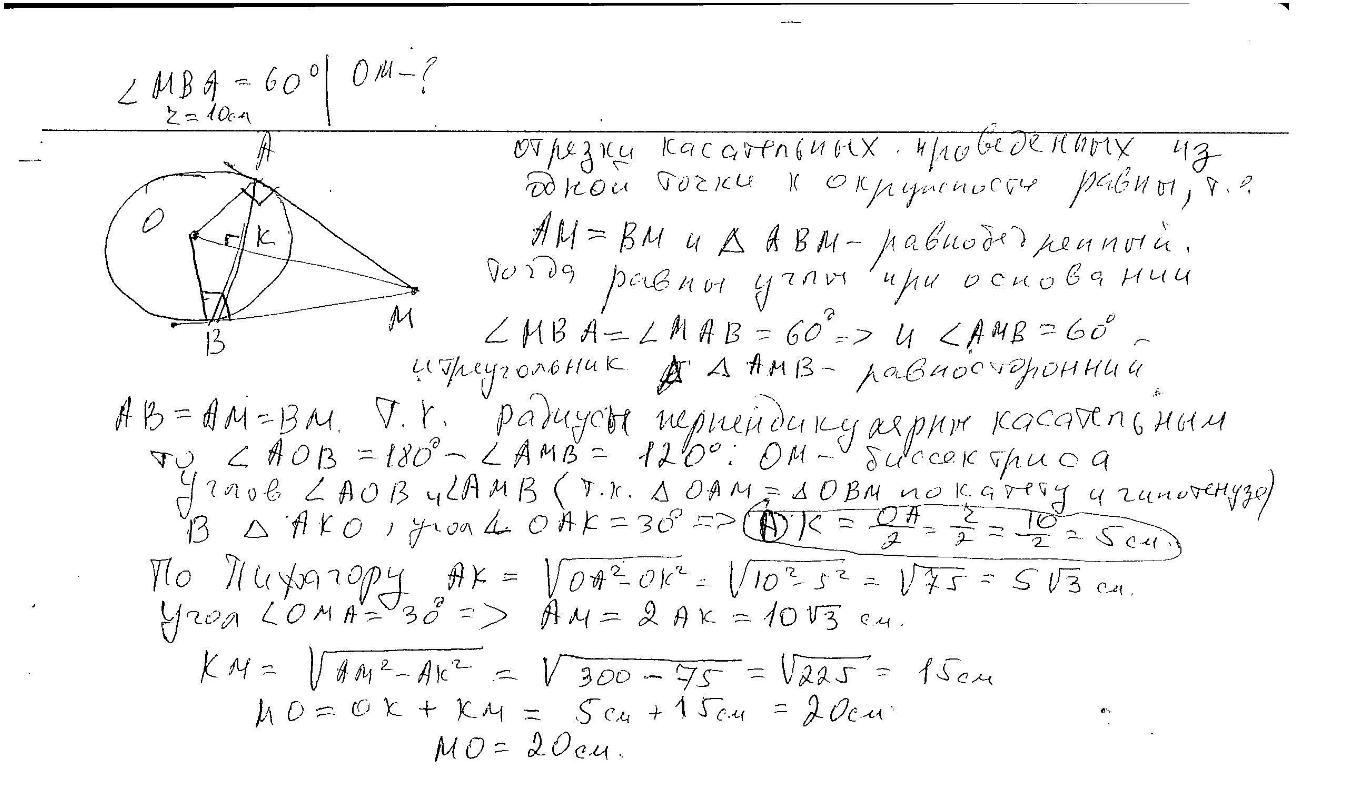 ∠ MBA = 60° | OM – ?
r = 10 см
A
O
K
M
B
отрезки касательных проведенных из
одной точки к окружности равны, т.е.
AM = BM и Δ ABM – равнобедренный.
Тогда равны углы при основании
∠ MBA = ∠ MAB = 60° => и ∠ AMB = 60°
и треугольник Δ AMB – равносторонний
AB = AM = BM. Т.к. радиусы перпендикулярны касательным
то ∠ AOB = 180° – ∠ AMB = 120°: OM – биссектриса
углов ∠ AOB и ∠ AMB (т.к. Δ OAM = Δ OBM по катету и гипотенузе)
В Δ AKO, угол ∠ OAK = 30° => AK = OA/2 = r/2 = 10/2 = 5 см.
По Пифагору AK = √(OA² – OK²) = √(10² – 5²) = √75 = 5√3 см.
Угол ∠ OMA = 30° => AM = 2 AK = 10√3 см.
KM = √(AM² – AK²) = √(300 – 75) = √225 = 15 см
MO = OK + KM = 5 см + 15 см = 20 см
MO = 20 см.